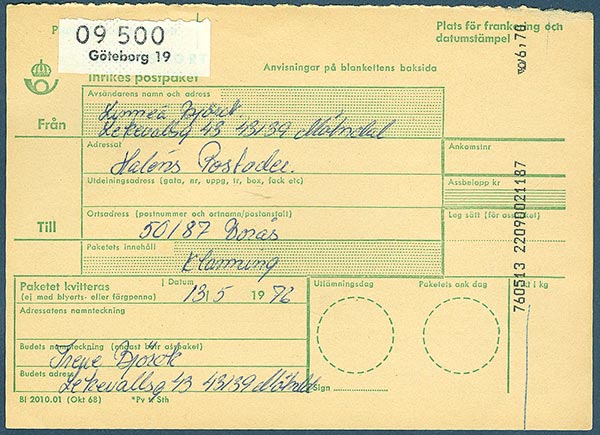 09 500
Göteborg 19
Plats för frankering och
datumstämpel
Inrikes postpaket
Anvisningar på blankettens baksida
Avsändarens namn och adress
Linnea Björck
Från
Lekevallsg 43 43139 Mölndal
Adressat
Ankomstnr
Haléns Postorder.
Utdelningsadress (gata, nr, uppg, tr, box, fack etc)
Assbelopp kr
Till
Ortsadress (postnummer och ortnamn/postanstalt)
Lag sätt (för
50187 Borås
Paketets innehåll
Klänning
Paketet kvitteras
(ej med blyerts- eller färgpenna)
Datum
13/5 1976
Utlämningsdag
Paketets ank dag
t kg
Adressatens namnteckning
Budets namnteckning (endast
Irene Björck
Budets adress
Lekevallsg 43 43139 Mölndal
Sign
BI 2010.01 (Okt 68)
*Pv Sth
6,70
760513 22090021187